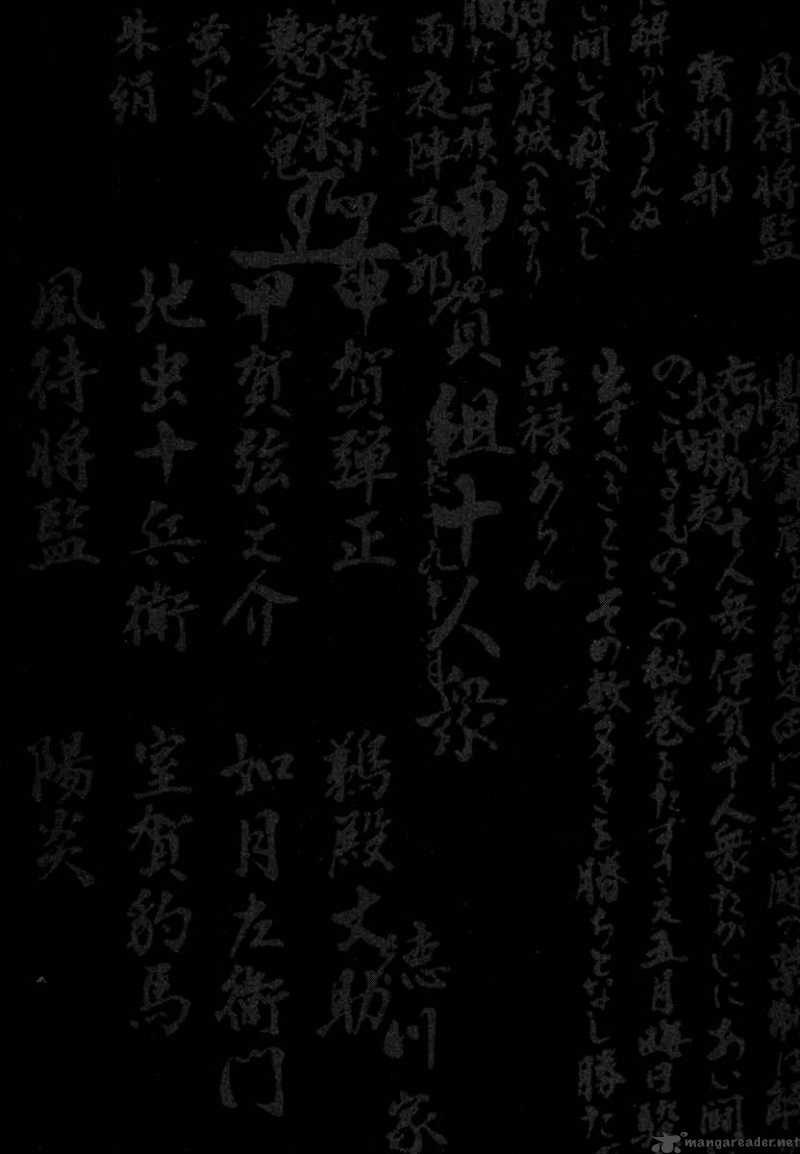 風待将監
霞刑部
に解かれ了んぬ
い闘いて殺すべし
日駿府城へまかり
勝たば一族
雨夜陣五郎
筑摩小四
家康
蓑念鬼
蛍火
朱絹
陽炎
右甲賀十人衆伊賀十人衆たがいにあい闘
のこれるものこの秘巻をたずさえ五月晦日駿
出ずべきことその数多きを勝ちとなし勝た
栄禄あらん
甲賀組十人衆
甲賀弾正
甲賀弦之介
地虫十兵衛
風待将監
鵜殿丈助
如月左衛門
室賀豹馬
陽炎
徳川家
mangareader.net